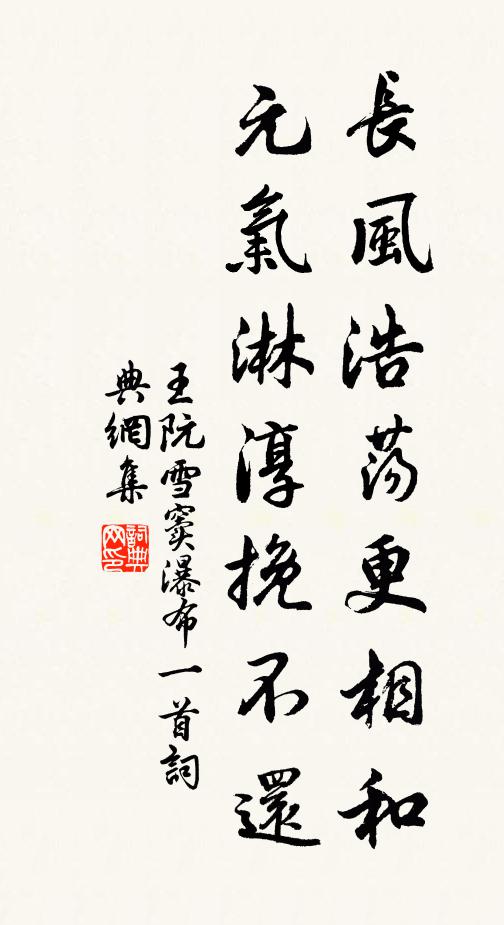 長風浩荡更相和
元氣淋淳挽不還
王阮雪竇瀑布一首詞
典網集
詞典網印